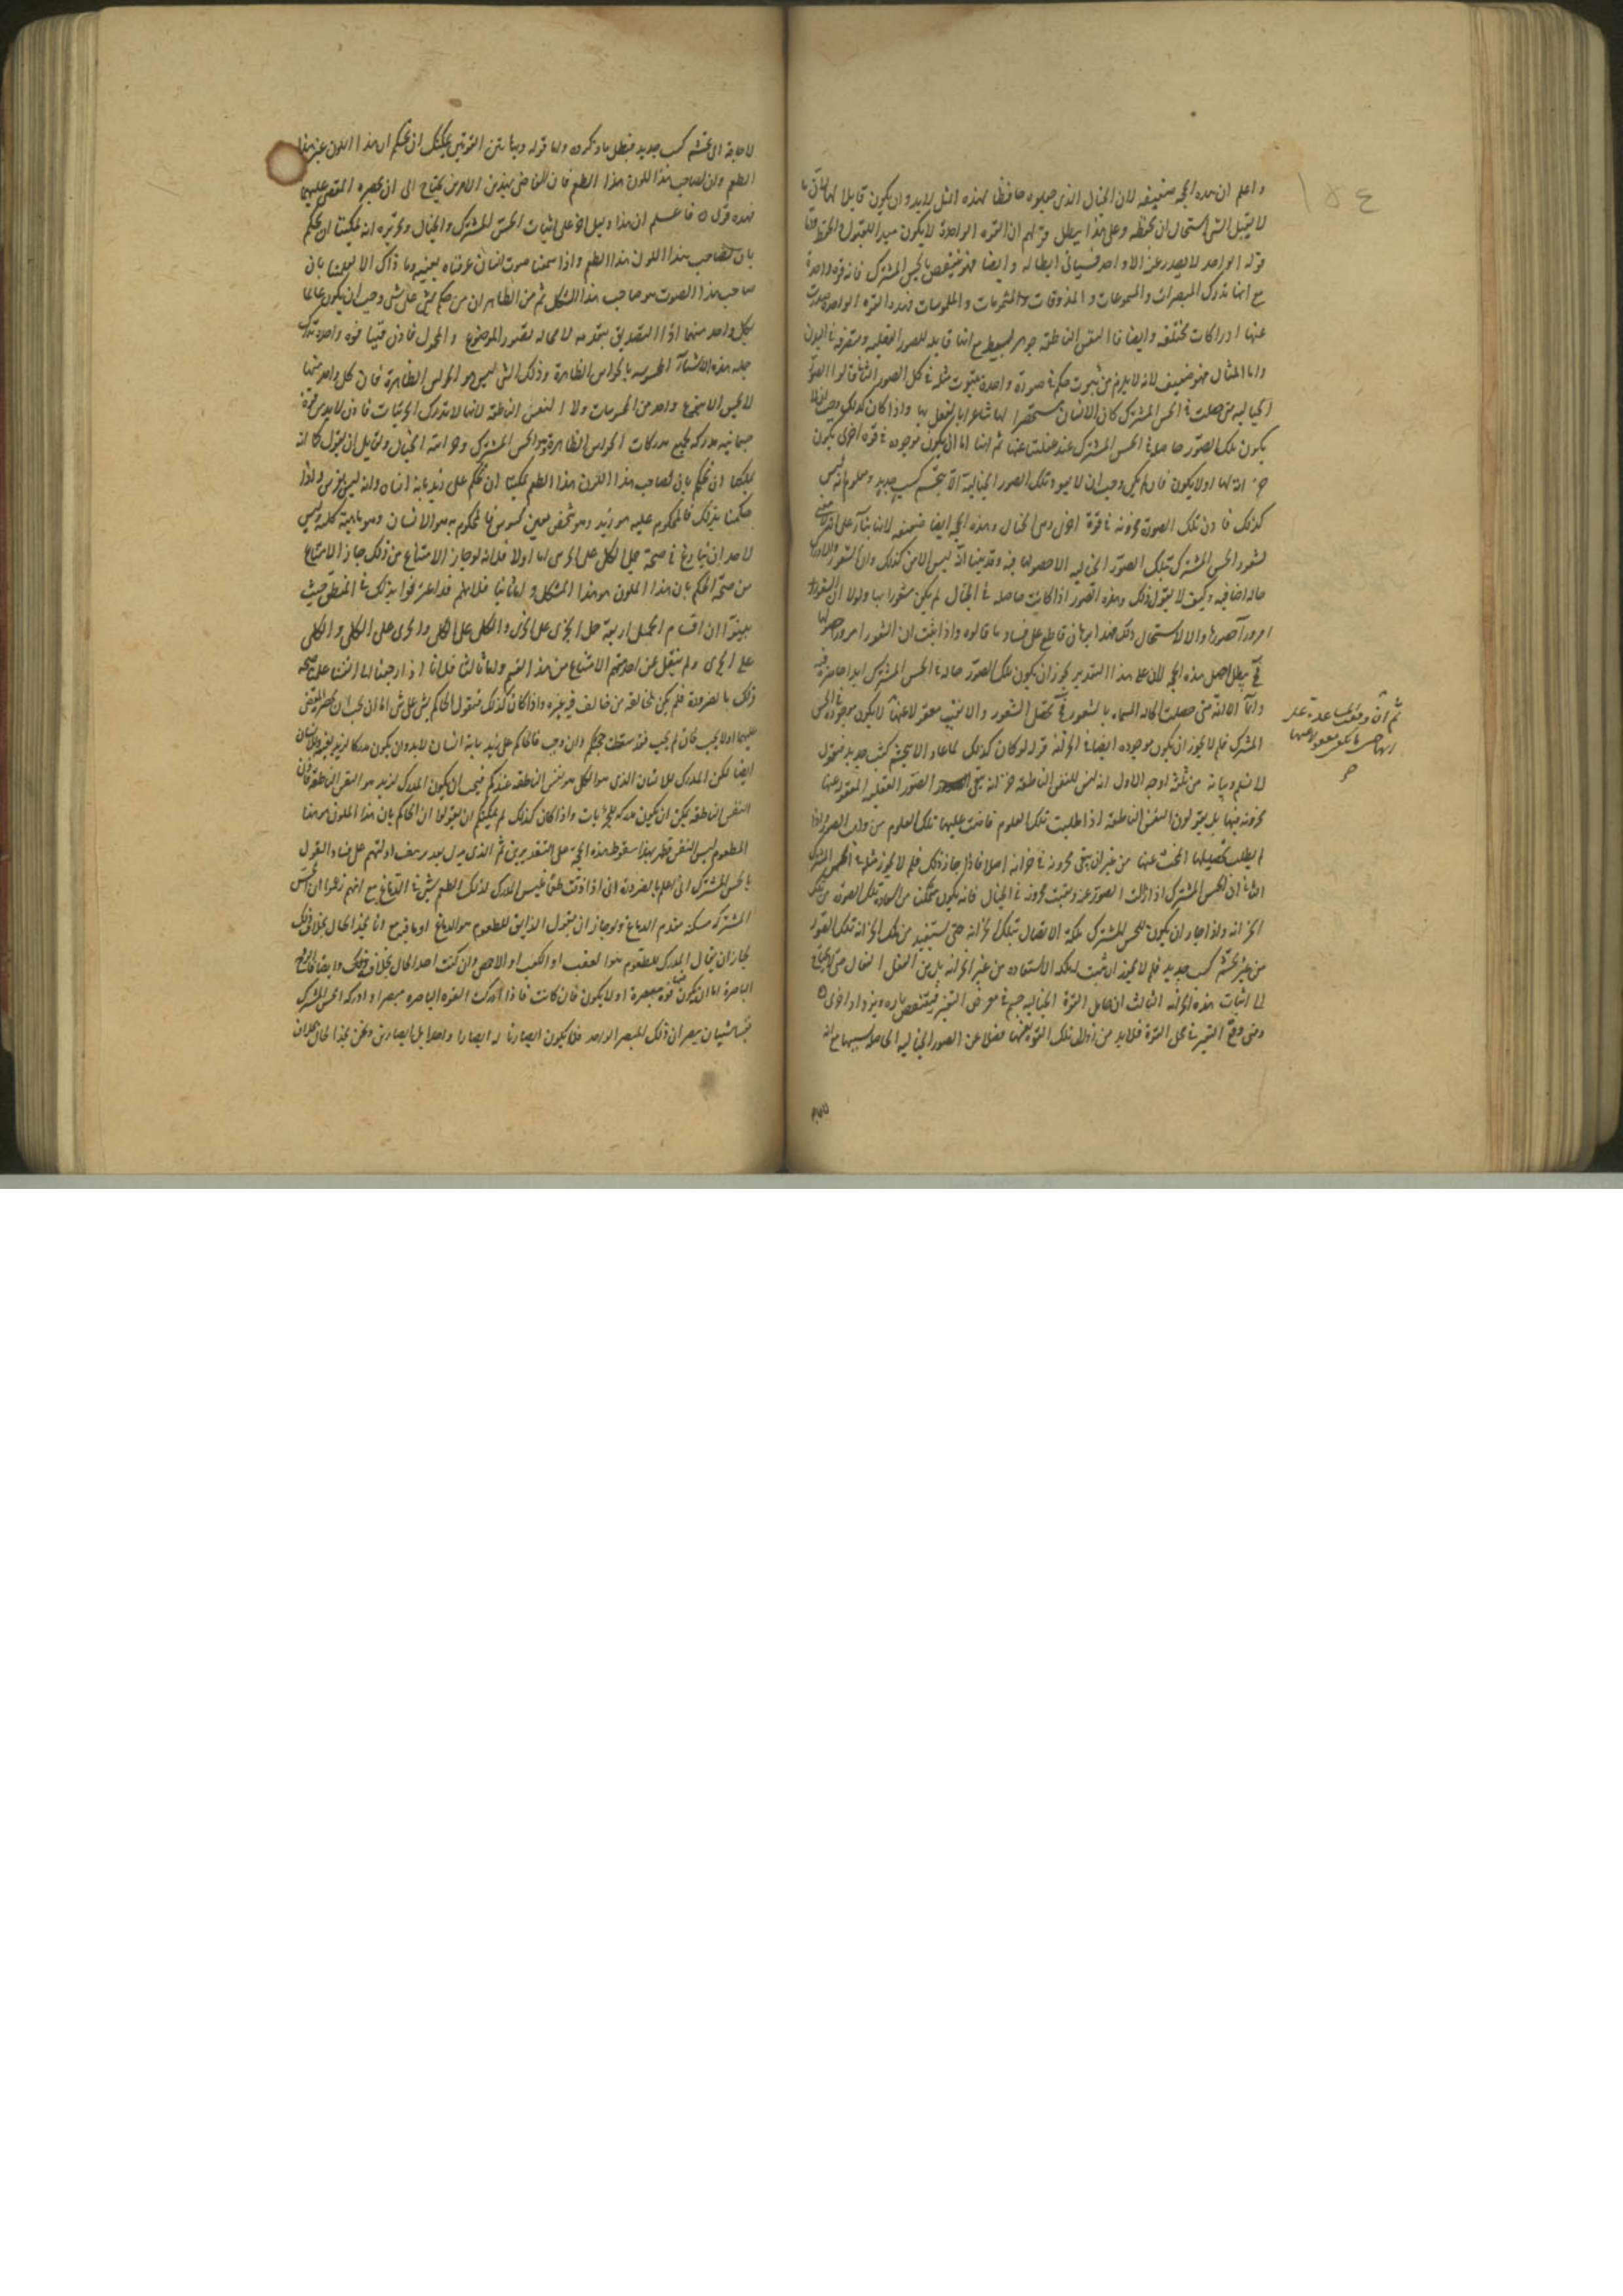 ١٥٤
واعلم ان هذه الحجة ضعيفه لان الخيال الذى جعلوه حافظا لهذه المثل لابد وان يكون قابلا لها لان ما
لا يقبل الشى استحال ان يحفظه وعلى هذا يبطل قولهم ان القوه الواحدة لا يكون مبدا للقبول والحفظ واما
قوله الواحد لا يصدر عنه الا واحد فسياتى ابطاله وايضا فهو منتقض بالحس المشترك فانه قوه واحدة
مع انها تدرك المبصرات والمسموعات والمذوقات والمشمومات والملموسات فهذه القوه الواحدة صدرت
عنها ادراكات مختلفه وايضا فالنفس الناطقه جوهر بسيط مع انها قابله للصور العقليه ومتصرفه فى البدن
واما المثال فهو ضعيف لانه لا يلزم من ثبوت حكم فى صورة واحدة ثبوت مثله فى كل الصور الثانى قالوا الصور
الخياليه متى حصلت فى الحس المشترك كان الانسان مستحضرا لها شاعرا بالفعل بها واذا كان كذلك وجب ان لا
يكون تلك الصور حاصلة فى الحس المشترك عند غفلتنا عنها ثم انها اما ان يكون موجوده فى قوه اخرى يكون
خزانة لها اولا يكون فان لم يكن وجب ان لا يعود تلك الصور الخيالية الا بتجشم كسب جديد ومعلوم انه ليس
كذلك فاذن تلك الصور مخزونة فى قوة اخرى وهى الخيال وهذه الحجه ايضا ضعيفه لانها بناء على انه لا معنى
لشعور الحس المشترك بتلك الصور الخياليه الا حصولها فيه وقد بينا انه ليس الامر كذلك وان الشعور والادراك
حاله اضافيه وكيف لا يقول ذلك وهذه الصور اذا كانت حاصله فى الخيال لم يكن مشعورا بها ولولا ان الشعور
امر وراء حصورها والا لاستحال ذلك فهذا برهان قاطع على فساد ما قالوه واذا ثبت ان الشعور امر وراء حصولها
فح يبطل اصل هذه الحجه لان على هذا التقدير يجوز ان يكون تلك الصور حالة فى الحس المشترك ابدا حاضرة فيه
دائما الا انه متى حصلت الحاله المسماه بالشعور فح تحصل الشعور والا فيبقى مغفولا عنها لا يكون موجوده فى الحس
المشترك فلم لا يجوز ان يكون موجوده ايضا فى الخزانه قوله لو كان كذلك لما عاد الا بتجشم كسب جديد فنقول
لا نسلم وبيانه من ثلثة اوجه الاول انه ليس للنفس الناطقه خزانة يبقى الصور العقليه المغفوله عنها
مخزونه فيها بل يقولون النفس الناطقة اذا طلبت تلك العلوم فاضت عليها تلك العلوم من واهب الصور واذا
لم يطلب تحصيلها انمحت عنها من غير ان يبقى مخزونه فى خزانه اصلا فاذا جاز ذلك فلم لا يجوز مثله فى الحس المشترك
الثانى ان الحس المشترك اذا زالت الصور عنه وبقيت مخزونه فى الخيال فانه يكون متمكنا من استعادة تلك الصوره من تلك
الخزانه واذا جاز ان يكون للحس المشترك ملكة الاتصال بتلك الخزانه حتى يستفيد من تلك الخزانه تلك الصور
من غير تجشم كسب جديد فلم لا يجوز ان يثبت له ملكه الاستفاده من غير الخزانه بل من العقل الفعال حتى لا يحتاج
الى اثبات هذه الخزانه الثالث ان حامل القوة الخياليه جسم فى معرض التغير فينتقص تاره ويزداد اخرى
ومتى وقع التغير فى محل القوة فلابد من زوال تلك القوه بعينها فضلا عن الصور الخياليه الحاصله بسببها مع انه
لا حاجة الى تجشم كسب جديد فبطل ما ذكروه واما قوله وبهاتين القوتين يمكنك ان تحكم ان هذا اللون غير هذا
الطعم وان لصاحب هذا اللون هذا الطعم فان القاضى بهذين الامرين يحتاج الى ان يحضره المقضى عليهما
فهذه قوى فاعلم ان هذا دليل اخر على اثبات الحس المشترك والخيال وتقريره انه يمكننا ان نحكم
بان لصاحب هذا اللون هذا الطعم واذا سمعنا صوت انسان عرفناه بعينه وما ذاك الا لعلمنا بان
صاحب هذا الصوت هو صاحب هذا الشكل ثم من الظاهر ان من حكم بشى على شى وجب ان يكون عالما
بكل واحد منهما اذ التصديق يتقدمه لا محاله تصور الموضوع والمحمول فاذن فينا قوه واحدة تدرك
جمله هذه الاشياء المحسوسه بالحواس الظاهرة وذلك الشى ليس هو الحواس الظاهرة فان كل واحد منها
لا يحس الا بنوع واحد من المحسوسات ولا النفس الناطقه لانها لا تدرك الجزئيات فاذن لابد من قوة
جسمانيه مدركه لجميع مدركات الحواس الظاهرة وهو الحس المشترك وخزانته الخيال ولقايل ان يقول كما انه
يمكننا ان نحكم بان لصاحب هذا اللون هذا الطعم يمكننا ان نحكم على زيد بانه انسان وانه ليس بفرس واذا
حكمنا بذلك فالمحكوم عليه هو زيد وهو شخص معين محسوس والمحكوم به هو الانسان وهو ماهية كليه وليس
لاحد ان ينازع فى صحة حمل الكلى على الجزئى اما اولا فلانه لو جاز الامتناع من ذلك جاز الامتناع
من صحة الحكم بان هذا الملون هو هذا المشكل واما ثانيا فلانهم قد اعترفوا بذلك فى المنطق حيث
بينوا ان اقسام الحمل اربعة حمل الجزى على الجزى والكلى على الكلى والجزى على الكلى والكلى
على الجزى ولم ينقل عن احد منهم الامتناع من هذا القسم واما ثالثا فلانا اذا رجعنا الى انفسنا علمنا صحه
ذلك بالضرورة فلم يكن لمخالفة من خالف فيه عبرة واذا كان كذلك فنقول الحاكم بشى على شى اما ان يجب ان يحضره المقضى
عليهما اولا يجب فان لم يجب فقد سقطت حجتكم وان وجب فالحاكم على زيد بانه انسان لابد وان يكون مدركا لزيد بعينه وللانسان
ايضا لكن المدرك للانسان الذى هو الكلى هو نفس الناطقه عندكم فيجب ان يكون المدرك لزيد هو النفس الناطقه فاذن
النفس الناطقه يمكن ان يكون مدركه للجزئيات واذا كان كذلك لم يمكنكم ان تقولوا ان الحاكم بان هذا الملون هو هذا
المطعوم ليس النفس فظهر بهذا سقوط هذه الحجة على التقديرين ثم الذى يدل بعد تزييف ادلتهم على فساد القول
بالحس المشترك انى اعلم بالضرورة انى اذا ذقت طعما فليس المدرك لذلك الطعم شى فى الدماغ مع انهم زعموا ان الحس
المشترك مسكنه مقدم الدماغ ولو جاز ان يقول الذايق للطعوم هو الدماغ او ما فيه مع انا نجد الحال بخلاف ذلك
لجاز ان يقال المدرك للطعوم هو العقب او الكعب او الاخمص وان كنت اجد الحال بخلاف ذلك وايضا فالقوه
الباصرة اما ان يكون قوة مبصرة اولا يكون فان كانت فاذا ادركت القوه الباصره مبصرا وادركه الحس المشترك
فهناك شيان مبصران ذلك المبصر الواحد فلا يكون ابصارنا له ابصارا واحدا بل ابصارين ونحن نجد الحال بخلافه
ثم ان وقعت المساعدة على
انها حين ما يكون مغفولا عنها